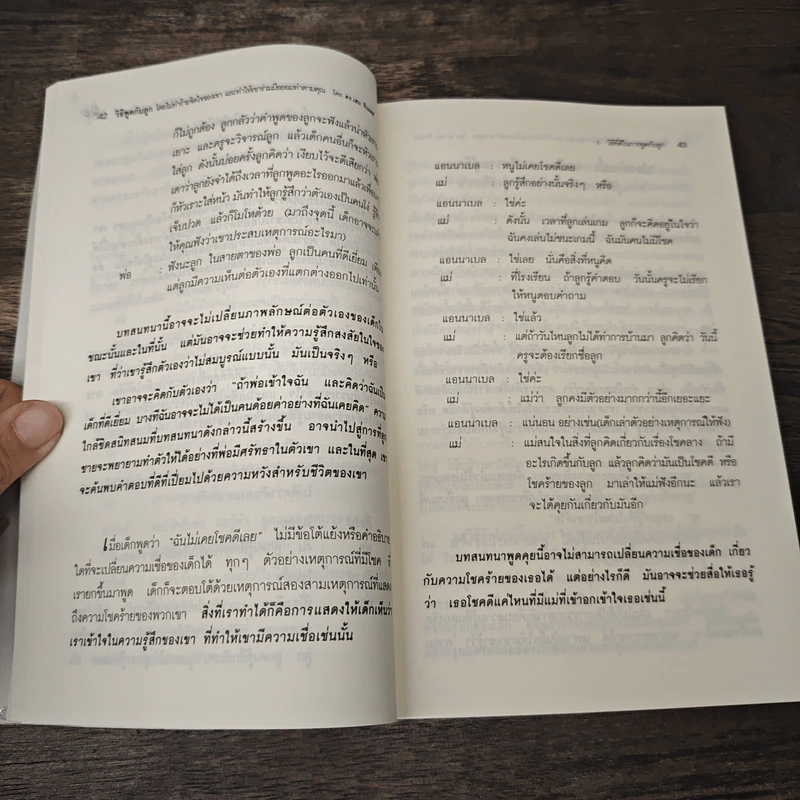 42 วิธีพูดกับลูก โดยไม่ทำร้ายจิตใจของเขา และทำให้เขาร่วมมือยอมทำตามคุณ โดย ดร.
ก็ไม่ถูกต้อง ลูกกลัวว่าคำพูดของลูกจะฟังแล้วน่าหัวเราะ
เยาะ และครูจะวิจารณ์ลูก แล้วเด็กคนอื่นก็จะหัวเราะ
ใส่ลูก ดังนั้นบ่อยครั้งลูกคิดว่า เงียบไว้จะดีเสียกว่า
เดาว่าลูกยังจำได้ถึงเวลาที่ลูกพูดอะไรออกมาแล้วเพื่อน
ก็หัวเราะใส่หน้า มันทำให้ลูกรู้สึกว่าตัวเองเป็นคนโง่
เจ็บปวด แล้วก็โมโหด้วย (มาถึงจุดนี้ เด็กอาจจะเล่า
ให้คุณฟังว่าเขาประสบเหตุการณ์อะไรมา)
พ่อ : ฟังนะลูก ในสายตาของพ่อ ลูกเป็นคนที่ดีเยี่ยม
แต่ลูกมีความเห็นต่อตัวเองที่แตกต่างออกไปเท่านั้น
บทสนทนานี้อาจจะไม่เปลี่ยนภาพลักษณ์ต่อตัวเองของเด็กใน
ขณะนั้นและในที่นั้น แต่มันอาจจะช่วยทำให้ความรู้สึกสงสัยในใจของ
เขา ที่ว่าเขารู้สึกตัวเองว่าไม่สมบูรณ์แบบนั้น มันเป็นจริงๆ หรือ
เขาอาจจะคิดกับตัวเองว่า "ถ้าพ่อเข้าใจฉัน และคิดว่าฉันเป็น
เด็กที่ดีเยี่ยม บางทีฉันอาจจะไม่ได้เป็นคนด้อยค่าอย่างที่ฉันเคยคิด" ความ
ใกล้ชิดสนิทสนมที่บทสนทนาดังกล่าวนี้สร้างขึ้น อาจนำไปสู่การที่ลูก
ชายจะพยายามทำตัวให้ได้อย่างที่พ่อมีศรัทธาในตัวเขา และในที่สุด เขา
จะค้นพบคำตอบที่ดีที่เปี่ยมไปด้วยความหวังสำหรับชีวิตของเขา
เมื่อเด็กพูดว่า "ฉันไม่เคยโชคดีเลย" ไม่มีข้อโต้แย้งหรือคำอธิบาย
ใดที่จะเปลี่ยนความเชื่อของเด็กได้ ทุกๆ ตัวอย่างเหตุการณ์ที่มีโชค ที่
เรายกขึ้นมาพูด เด็กก็จะตอบโต้ด้วยเหตุการณ์สองสามเหตุการณ์ที่แสดง
ถึงความโชคร้ายของพวกเขา สิ่งที่เราทำได้ก็คือการแสดงให้เด็กเห็นว่า
เราเข้าใจในความรู้สึกของเขา ที่ทำให้เขามีความเชื่อเช่นนั้น
1 วิธีที่ดีในการพูดกับลูก 43
แอนนาเบล : หนูไม่เคยโชคดีเลย
แม่ : ลูกรู้สึกอย่างนั้นจริงๆ หรือ
แอนนาเบล : ใช่ค่ะ
แม่ : ดังนั้น เวลาที่ลูกเล่นเกม ลูกก็จะคิดอยู่ในใจว่า
ฉันคงเล่นไม่ชนะเกมนี้ ฉันมันคนไม่มีโชค
แอนนาเบล : ใช่เลย นั่นคือสิ่งที่หนูคิด
แม่ : ที่โรงเรียน ถ้าลูกรู้คำตอบ วันนั้นครูจะไม่เรียก
ให้หนูตอบคำถาม
แอนนาเบล : ใช่แล้ว
แม่ : แต่ถ้าวันไหนลูกไม่ได้ทำการบ้านมา ลูกคิดว่า วันนี้
ครูจะต้องเรียกชื่อลูก
แอนนาเบล : ใช่ค่ะ
แม่ : แม่ว่า ลูกคงมีตัวอย่างมากกว่านี้อีกเยอะแยะ
แอนนาเบล : แน่นอน อย่างเช่น(เด็กเล่าตัวอย่างเหตุการณ์ให้ฟัง)
แม่ : แม่สนใจในสิ่งที่ลูกคิดเกี่ยวกับเรื่องโชคลาง ถ้ามี
อะไรเกิดขึ้นกับลูก แล้วลูกคิดว่ามันเป็นโชคดี หรือ
โชคร้ายของลูก มาเล่าให้แม่ฟังอีกนะ แล้วเรา
จะได้คุยกันเกี่ยวกับมันอีก
บทสนทนาพูดคุยนี้อาจไม่สามารถเปลี่ยนความเชื่อของเด็ก เกี่ยว
กับความโชคร้ายของเธอได้ แต่อย่างไรก็ดี มันอาจจะช่วยสื่อให้เธอรู้
ว่า เธอโชคดีแค่ไหนที่มีแม่ที่เข้าอกเข้าใจเธอเช่นนี้